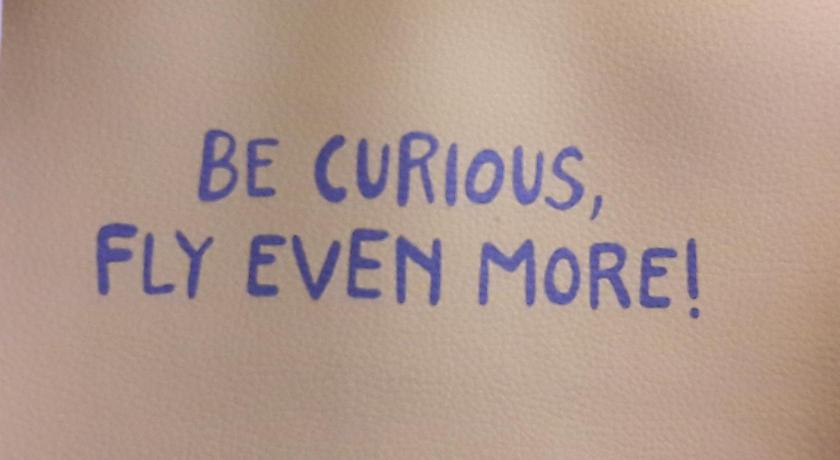 BE CURIOUS,
FLY EVEN MORE!